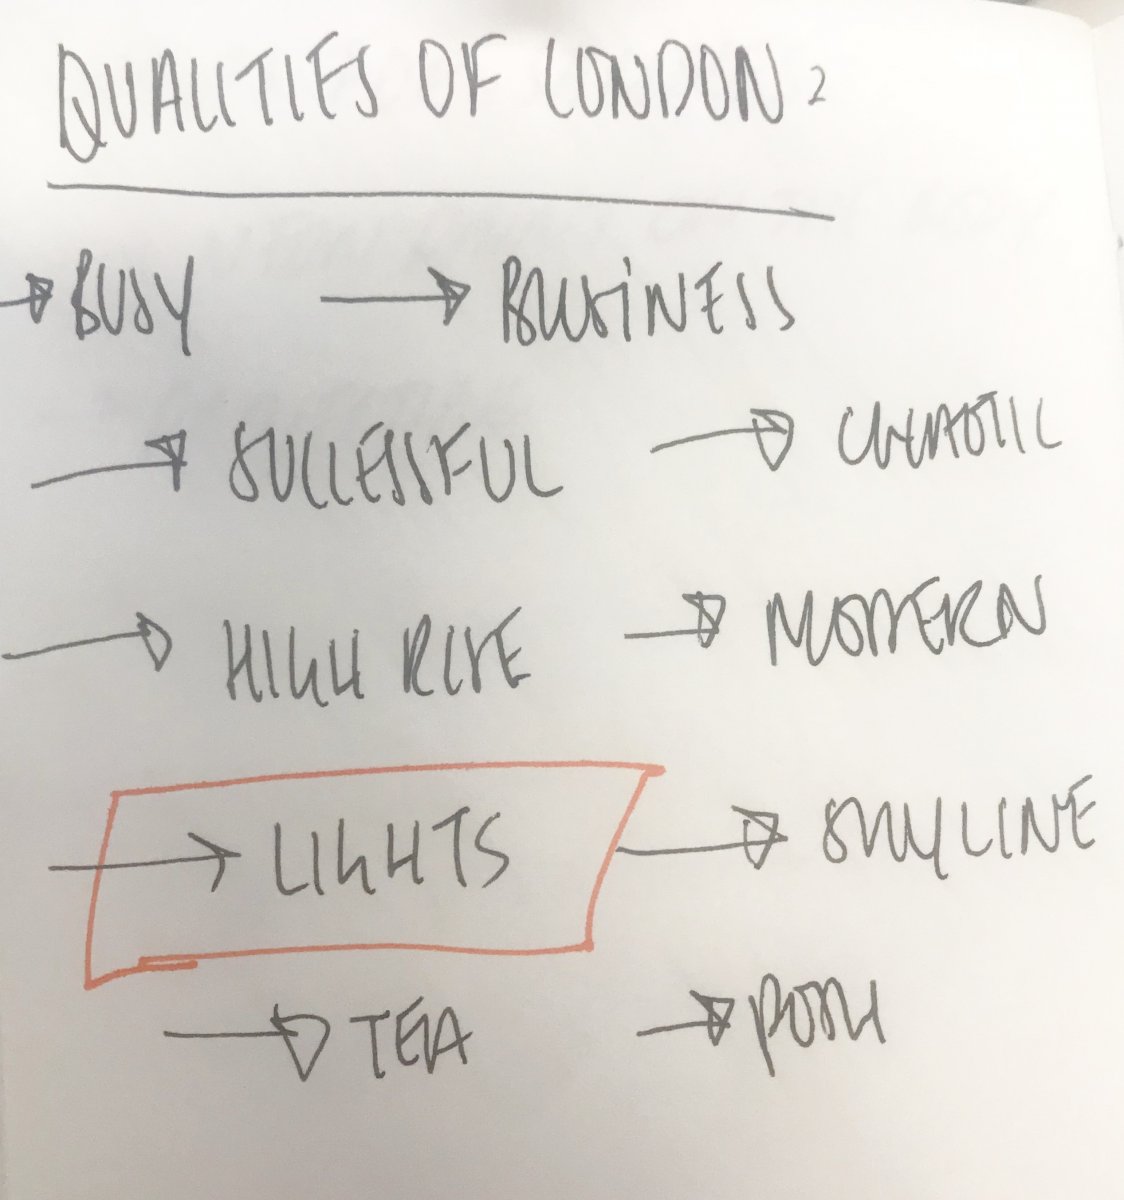 QUALITIES OF LONDON 2
→ BUSY → BUSINESS
→ SUCCESSFUL → CHAOTIC
→ HIGH RISE → MODERN
→ LIGHTS → SKYLINE
→ TEA → POSH